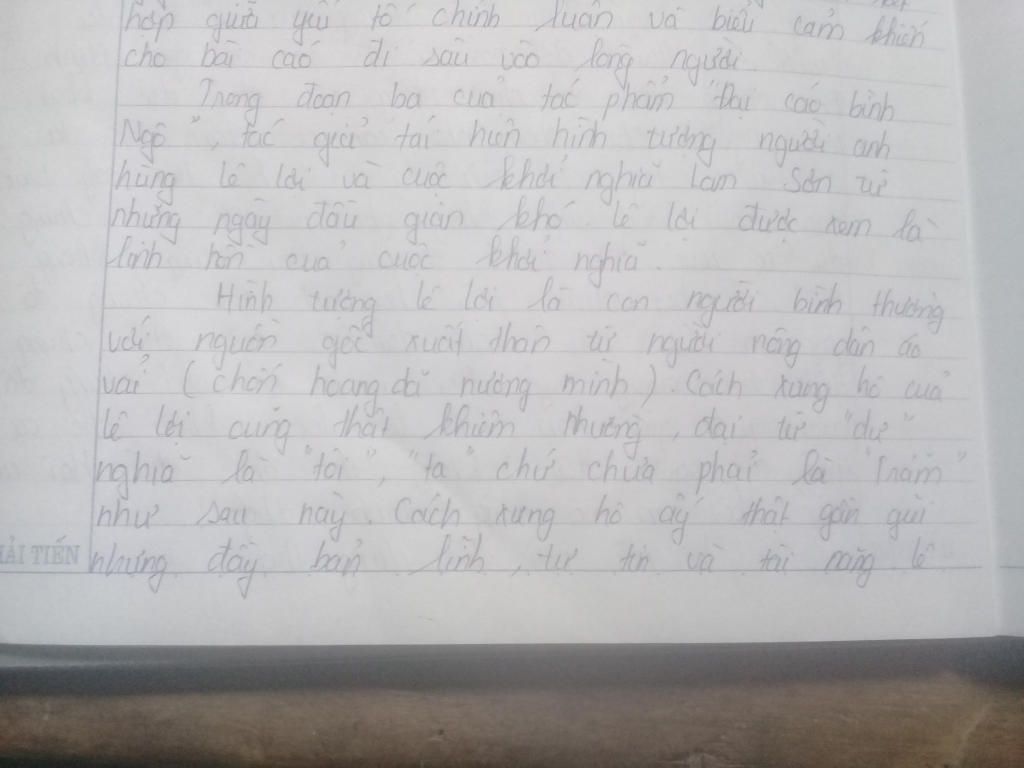 hợp giữa yếu tố chính luận và biểu cảm khiến
cho bài cáo đi sâu vào lòng người.
Trong đoạn ba của tác phẩm "Đại cáo bình
Ngô", tác giả tái hiện hình tượng người anh
hùng Lê Lợi và cuộc khởi nghĩa Lam Sơn từ
những ngày đầu gian khó Lê Lợi được xem là
linh hồn của cuộc khởi nghĩa.
Hình tượng Lê Lợi là con người bình thường
với nguồn gốc xuất thân từ người nông dân áo
vải (chốn hoang dã nương mình) Cách xưng hô của
Lê Lợi cũng thật khiêm nhường, đại từ "dư"
nghĩa là "tôi", "ta" chứ chưa phải là "Trẫm"
như sau này. Cách xưng hô ấy thật gần gũi
nhưng đầy bản lĩnh, tự tin và tài năng Lê
HẢI TIẾN